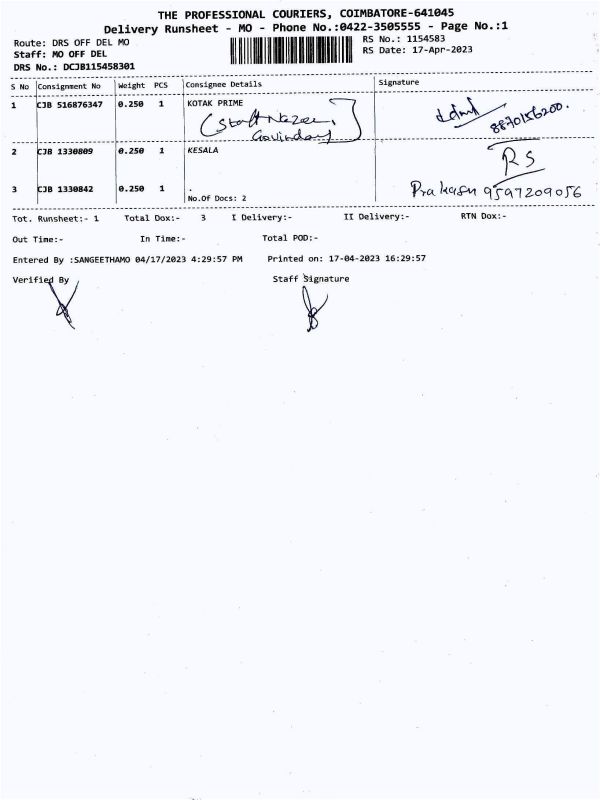 THE PROFESSIONAL COURIERS, COIMBATORE-641045
Delivery Runsheet - MO - Phone No.:0422-3505555 - Page No.:1
Route: DRS OFF DEL MO
RS No.: 1154583
Staff: MO OFF DEL
RS Date: 17-Apr-2023
DRS No.: DCJB115458301
S No Consignment No Weight PCS Consignee Details Signature
1 CJB 516876347 0.250 1 KOTAK PRIME
(Staff Name,
8870156200.
2 CJB 1330809 0.250 1 KESALA
RS
3 CJB 1330842 0.250 1 .
Prakash 9597209056
No.Of Docs: 2
Tot. Runsheet:- 1 Total Dox:- 3 I Delivery:- II Delivery:- RTN Dox:-
Out Time:- In Time:- Total POD:-
Entered By :SANGEETHAMO 04/17/2023 4:29:57 PM Printed on: 17-04-2023 16:29:57
Verified By Staff Signature